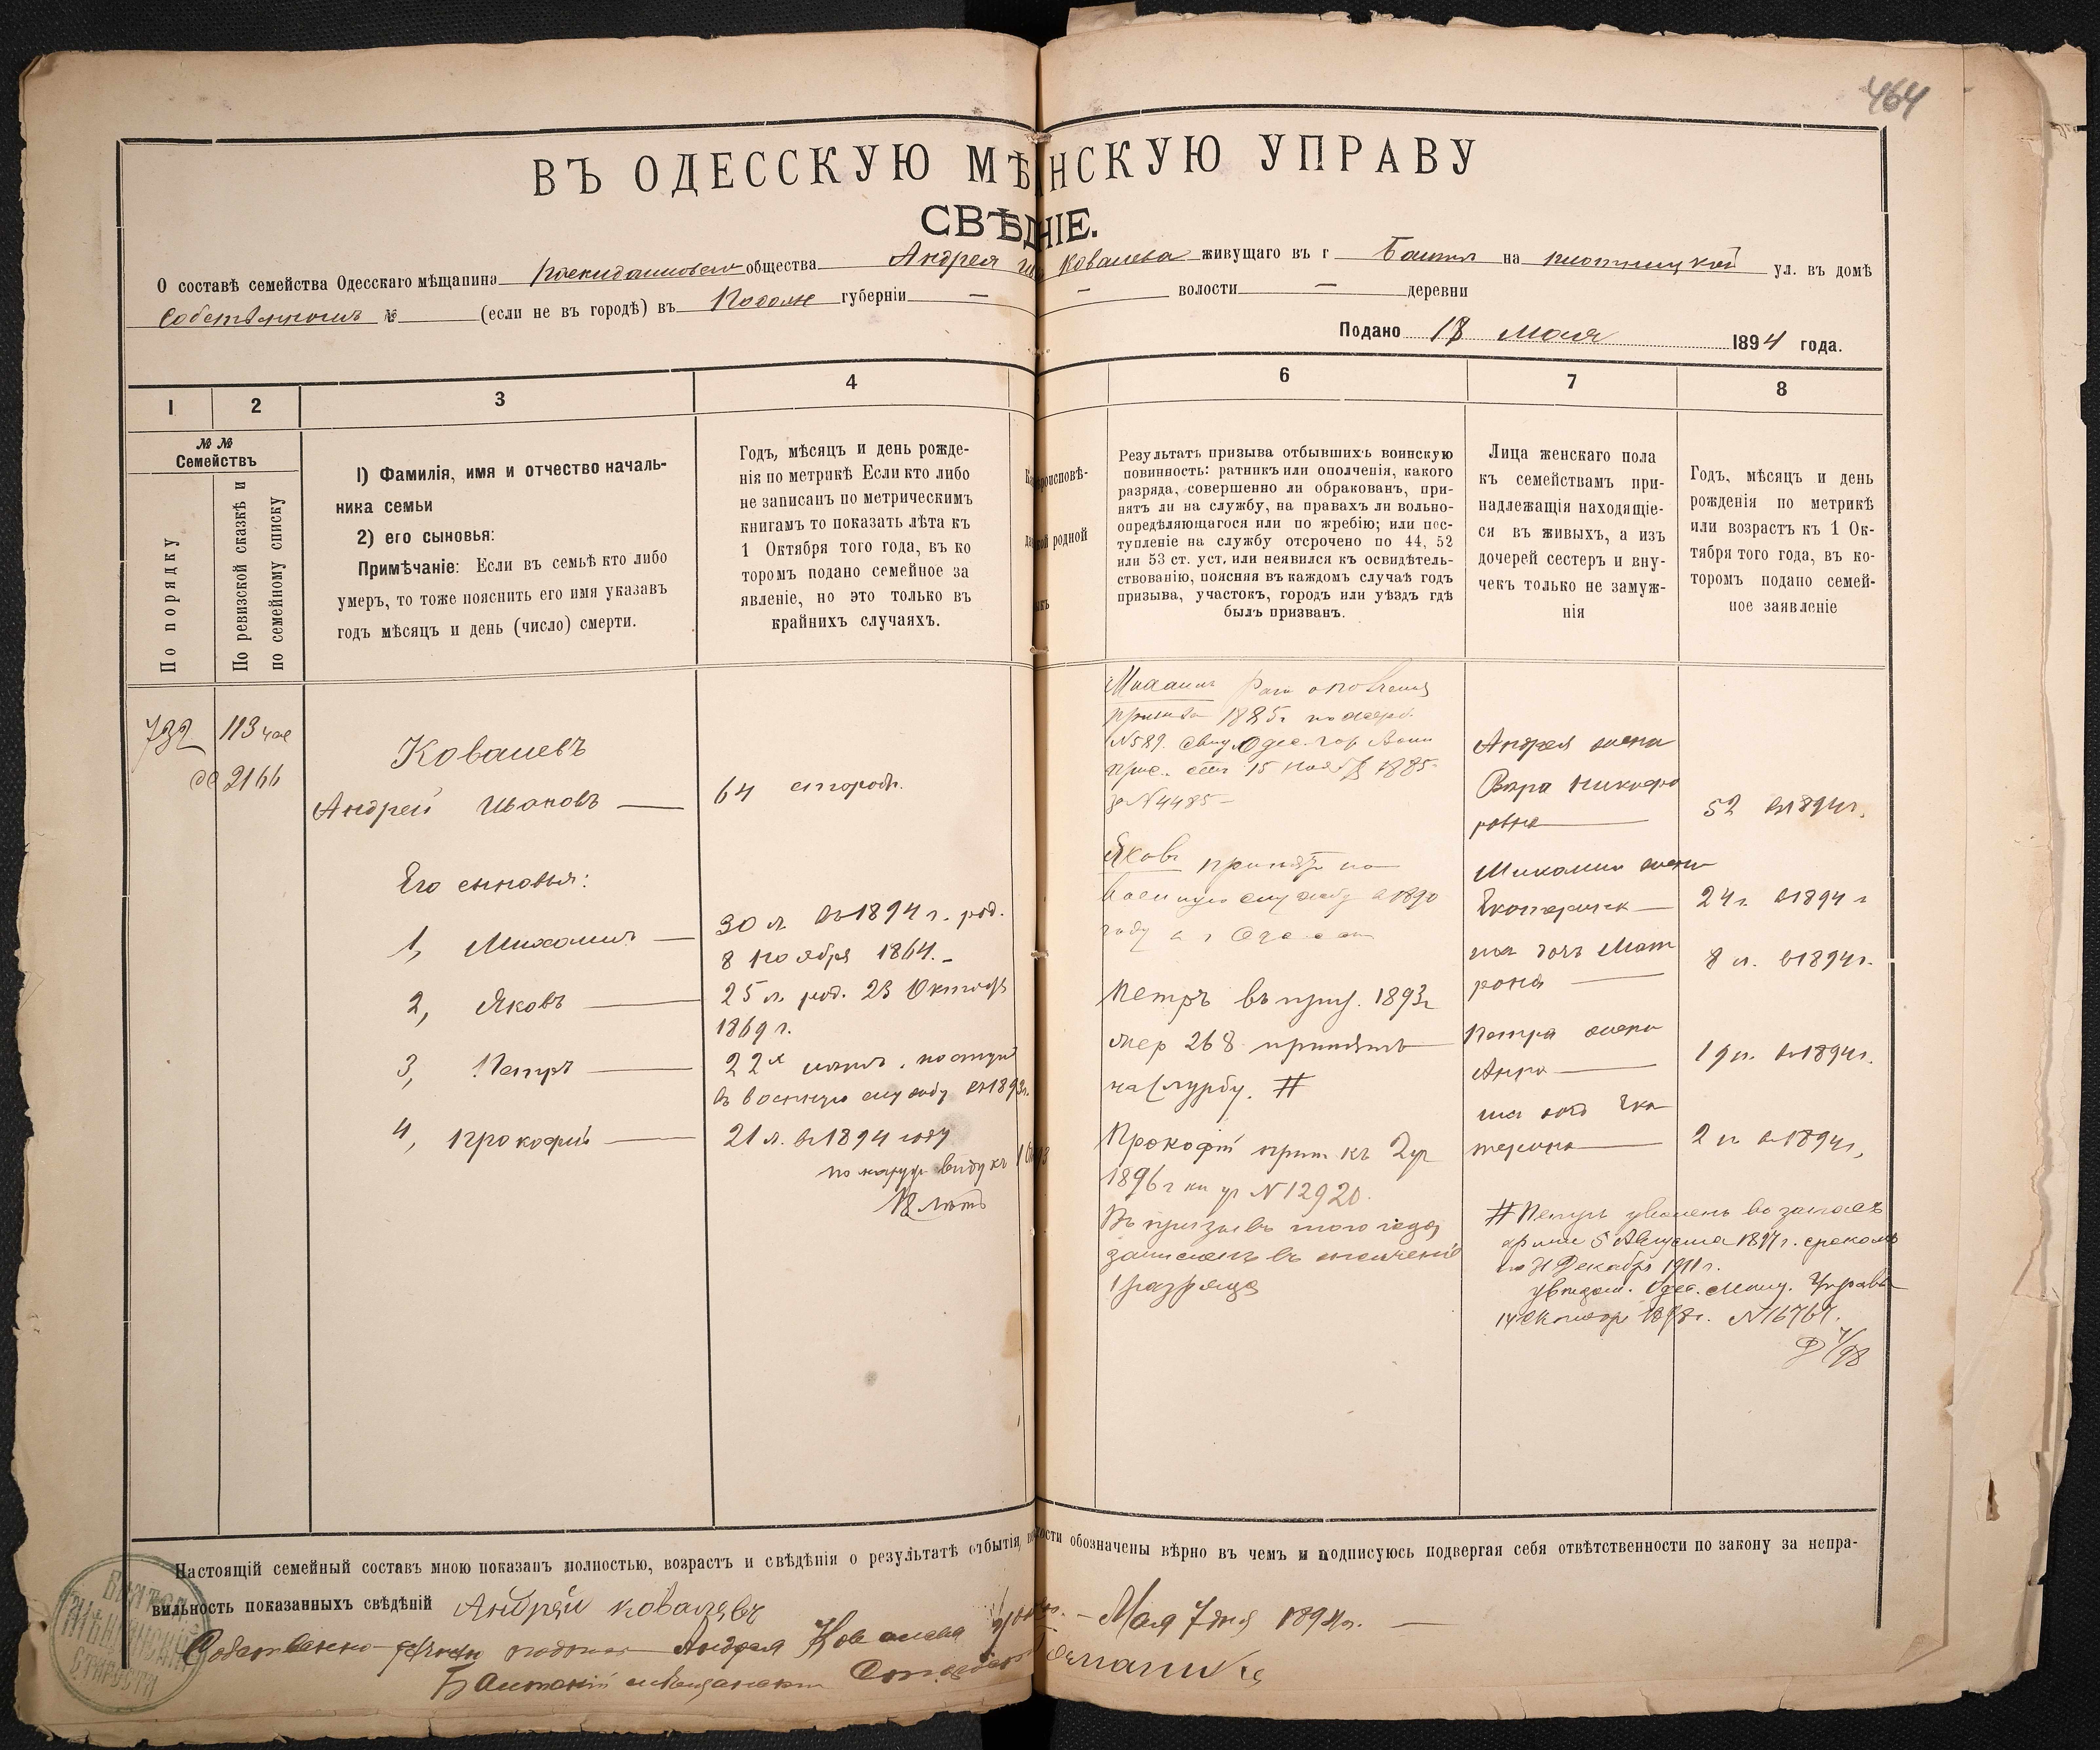 464
ВЪ ОДЕССКУЮ МѢ НСКУЮ УПРАВУ
СВѢД НІЕ.
О составѣ семейства Одесскаго мѣщанина общества Андрея Ковалева живущаго въ г Балта на ул. въ домѣ
собственномъ № (если не въ городѣ) въ Подол губерніи — — волости — деревни
Подано 18 Мая 1894 года.
1 2 3 4 6 7 8
№ №
Семействъ
По порядку
По ревизской сказкѣ и
по семейному списку
1) Фамилія, имя и отчество началь-
ника семьи
2) его сыновья:
Примѣчаніе: Если въ семьѣ кто либо
умеръ, то тоже пояснить его имя указавъ
годъ мѣсяцъ и день (число) смерти.
Годъ, мѣсяцъ и день рожде-
нія по метрикѣ Если кто либо
не записанъ по метрическимъ
книгамъ то показать лѣта къ
1 Октября того года, въ ко
торомъ подано семейное за
явленіе, но это только въ
крайнихъ случаяхъ.
роисповѣ-
родной
Результатъ призыва отбывшихъ воинскую
повинность: ратникъ или ополченія, какого
разряда, совершенно ли обракованъ, при-
нятъ ли на службу, на правахъ ли вольно-
опредѣляющагося или по жребію; или пос-
тупленіе на службу отсрочено по 44, 52
или 53 ст. уст. или неявился къ освидѣтель-
ствованію, поясняя въ каждомъ случаѣ годъ
призыва, участокъ, городъ или уѣздъ гдѣ
былъ призванъ.
Лица женскаго пола
къ семействамъ при-
надлежащія находящіе-
ся въ живыхъ, а изъ
дочерей сестеръ и вну-
чекъ только не замуж-
нія
Годъ, мѣсяцъ и день
рожденія по метрикѣ
или возрастъ къ 1 Ок-
тября того года, въ ко-
торомъ подано семей-
ное заявленіе
732 113
2166
Ковалевъ
Андрей Ивановъ — 64
Его сыновья:
1, Михаилъ — 30 л. въ 1894 г. род.
8 Ноября 1864. -
2, Яковъ — 25 л. род. 23 Октяб
1869 г.
3, Петръ — 22х
въ военную службу въ 1893г.
4, Прокофій — 21 л. въ 1894 году
по наруж виду къ
18 лѣтъ
Михаилъ Рат ополченія
призыва 1885г
№589. Одес. гор
прис. 15 Нояб 1885
№4485 —
Яковъ принятъ на
военную службу в 1890
году в г Одессѣ
Петръ въ приз. 1893г
жер 268 принятъ
на службу. #
Прокофій прип къ 2 уч
1896г №12920.
Въ призывъ того года
записанъ въ ополченіе
1 разряда
Андрея жена
Вара Никифо
ровна — 52 въ 1894г.
Михаила жена
Екатерина — 24 г. в 1894 г
дочь Мат
рона — 8 л. в 1894г.
Петра жена
Анна — 19 л. в 1894г.
дочь Ека
терина — 2 г. в 1894г,
# Петръ уволенъ въ запасъ
арміи 5 Августа 1897г. срокомъ
по 31 Декабря 1911г.
увѣдом. Одес. Мѣщ. Управы
14 Октября 1898г. №16761.
Настоящій семейный составъ мною показанъ полностью, возрастъ и свѣдѣнія о результатѣ отбытія, ности обозначены вѣрно въ чемъ и подписуюсь подвергая себя отвѣтственности по закону за непра-
вильность показанныхъ свѣдѣній Андрей Ковалевъ
Собственно Андрея Ковалева — Мая 7 дня 1894г. —
Балтскій мѣщанскій
МѢЩАНСКІЙ
СТАРОСТА